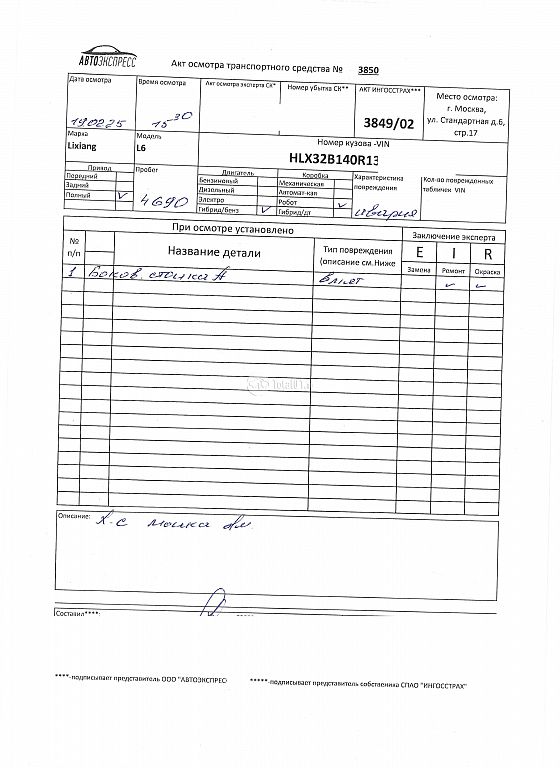 АВТОЭКСПРЕСС
Акт осмотра транспортного средства № 3850
Дата осмотра
190225
Время осмотра
15-30
Акт осмотра эксперта СК*
Номер убытка СК**
АКТ ИНГОССТРАХ***
3849/02
Место осмотра:
г. Москва,
ул. Стандартная д.6,
стр.17
Марка
Lixiang
Модель
L6
Номер кузова -VIN
HLX32B140R13
Привод
Передний
Задний
Полный V
Пробег
4690
Двигатель
Бензиновый
Дизольный
Электро
Гибрид/бенз V
Коробка
Механическая
Автомат-кая
Робот V
Гибрид/дт
Характеристика
повреждения
авария
Кол-во поврежденных
табличек VIN
При осмотре установлено
Заключение эксперта
№
п/п
Название детали
Тип повреждения
(описание см.Ниже
E I R
Замена Ремонт Окраска
1 Боков. стойка А вмят V V
Описание: Х-с мойка а/м
Составил****:
****-подписывает представитель ООО "АВТОЭКСПРЕС
*****-подписывает представитель собственика СПАО "ИНГОССТРАХ"